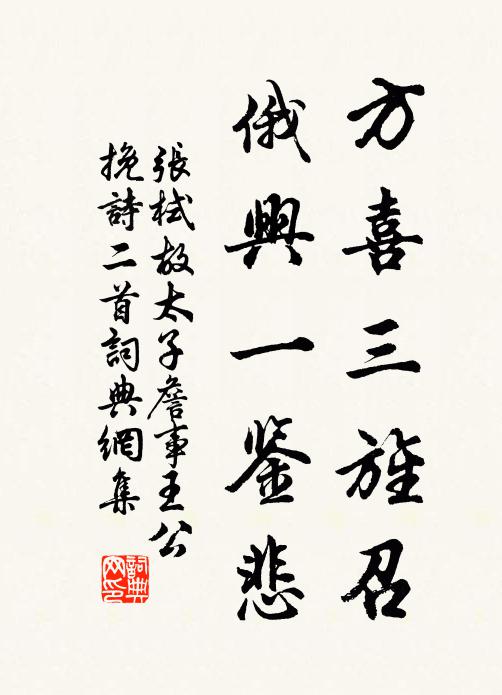 方喜三旌召
俄興一鉴悲
張栻故太子詹事王公
挽詩二首詞典網集
詞典網印